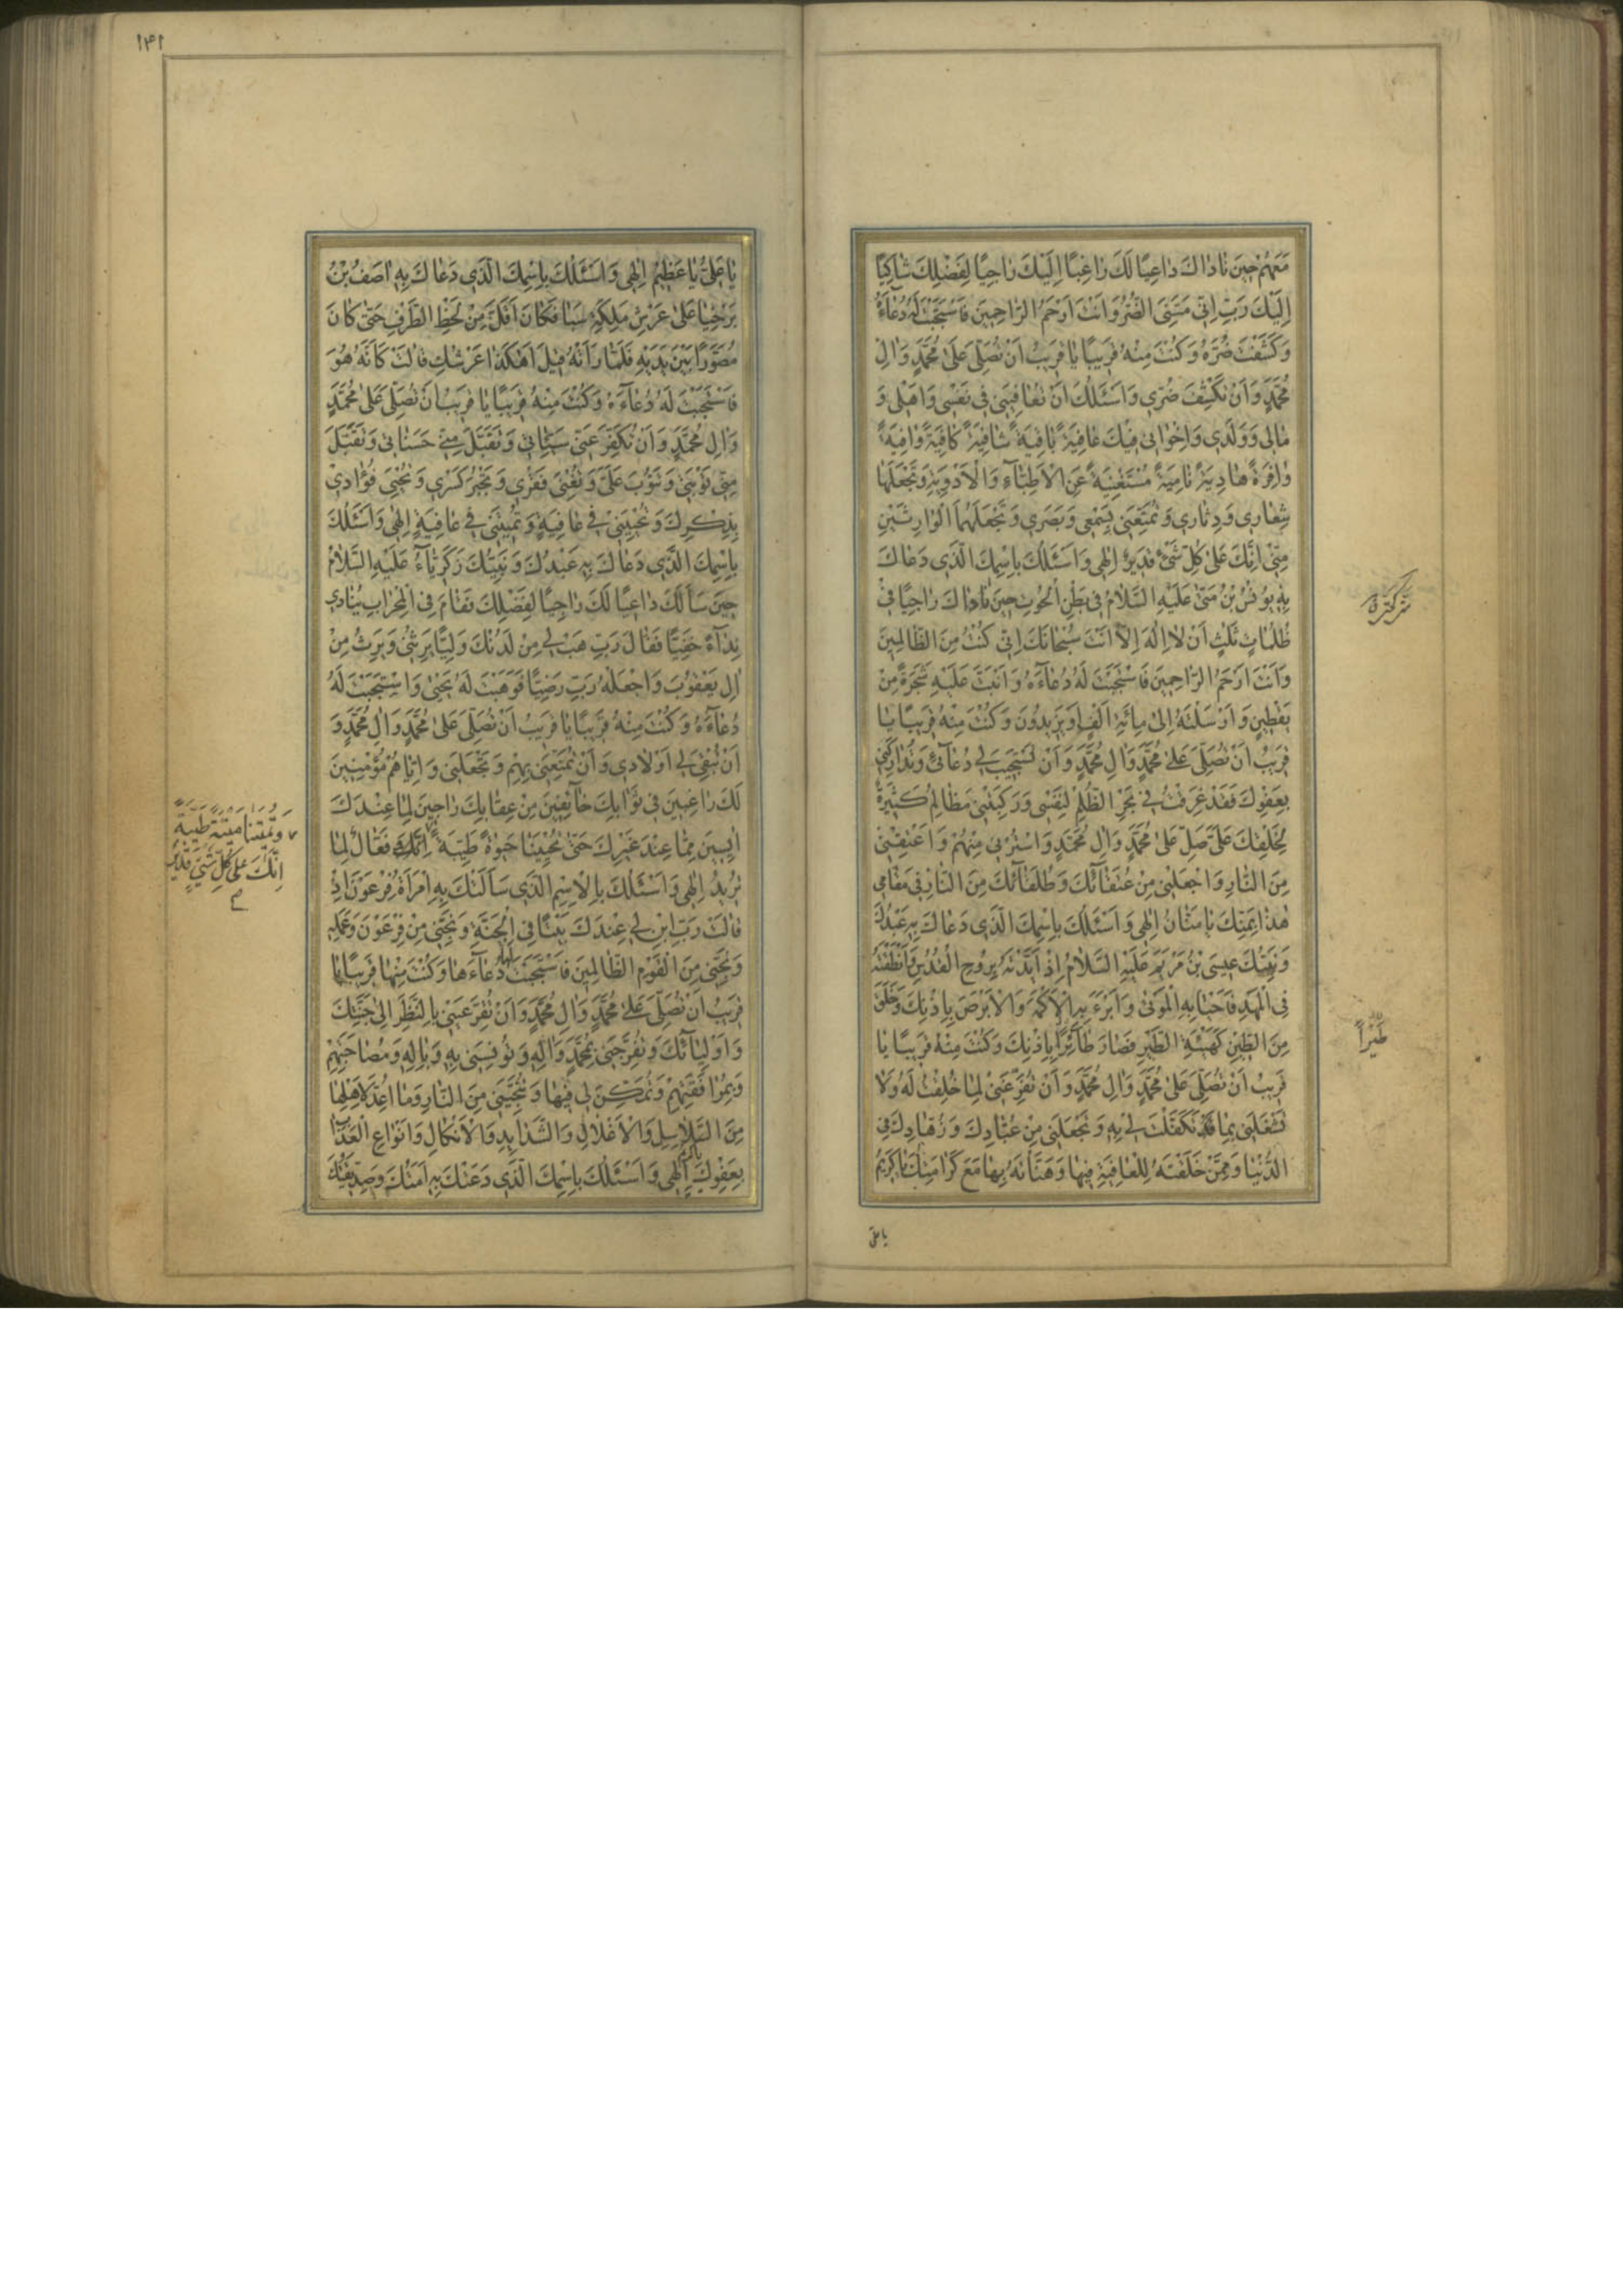 مَعَهُمْ حِينَ نَادَاكَ دَاعِيًا لَكَ رَاغِبًا اِلَيْكَ رَاجِيًا لِفَضْلِكَ شَاكِيًا
اِلَيْكَ رَبِّ اِنّى مَسَّنِىَ الضُّرُّ وَاَنْتَ اَرْحَمُ الرَّاحِمينَ فَاسْتَجَبْتَ لَهُ دُعَآءَهُ
وَكَشَفْتَ ضُرَّهُ وَكُنْتَ مِنْهُ قَريبًا يَا قَريبُ اَنْ تُصَلِّىَ عَلَى مُحَمَّدٍ وَالِ
مُحَمَّدٍ وَاَنْ تَكْشِفَ ضُرّى وَاَسْئَلُكَ اَنْ تُعَافِيَنى فى نَفْسى وَاَهْلى وَ
مَالى وَوَلَدى وَاِخْوَانى فيكَ عَافِيَةً بَاقِيَةً شَافِيَةً كَافِيَةً وَافِيَةً
وَافِرَةً هَادِيَةً نَامِيَةً مُسْتَغْنِيَةً عَنِ الْاَطِبَّاءِ وَالْاَدْوِيَةِ وَتَجْعَلَهَا
شِعَارى وَدِثَارى وَتُمَتِّعَنى بِسَمْعى وَبَصَرى وَتَجْعَلَهُمَا الْوَارِثَيْنِ
مِنّى اِنَّكَ عَلَى كُلِّ شَىْءٍ قَديرٌ اِلهى وَاَسْئَلُكَ بِاسْمِكَ الَّذى دَعَاكَ
بِهِ يُونُسُ بْنُ مَتَّى عَلَيْهِ السَّلَامُ فى بَطْنِ الْحُوتِ حينَ نَادَاكَ رَاجِيًا فى
ظُلُمَاتٍ ثَلَثٍ اَنْ لَا اِلَهَ اِلَّا اَنْتَ سُبْحَانَكَ اِنّى كُنْتُ مِنَ الظَّالِمينَ
وَاَنْتَ اَرْحَمُ الرَّاحِمينَ فَاسْتَجَبْتَ لَهُ دُعَآءَهُ وَاَنْبَتَّ عَلَيْهِ شَجَرَةً مِنْ
يَقْطينٍ وَاَرْسَلْتَهُ اِلَى مِائَةِ اَلْفٍ اَوْ يَزيدُونَ وَكُنْتَ مِنْهُ قَريبًا يَا
قَريبُ اَنْ تُصَلِّىَ عَلَى مُحَمَّدٍ وَالِ مُحَمَّدٍ وَاَنْ تَسْتَجيبَ لى دُعَآئى وَتُدَارِكَنى
بِعَفْوِكَ فَقَدْ غَرِقْتُ فى بَحْرِ الظُّلْمِ لِنَفْسى وَرَكِبَتْنى مَظَالِمُ كَثيرَةٌ
لِخَلْقِكَ عَلَىَّ صَلِّ عَلَى مُحَمَّدٍ وَالِ مُحَمَّدٍ وَاسْتُرْنى مِنْهُمْ وَاَعْتِقْنى
مِنَ النَّارِ وَاجْعَلْنى مِنْ عُتَقَآئِكَ وَطُلَقَآئِكَ مِنَ النَّارِ فى مَقَامى
هَذَا بِمَنِّكَ يَا مَنَّانُ اِلهى وَاَسْئَلُكَ بِاسْمِكَ الَّذى دَعَاكَ بِهِ عَبْدُكَ
وَنَبِيُّكَ عيسَى بْنُ مَرْيَمَ عَلَيْهِ السَّلَامُ اِذْ اَيَّدْتَهُ بِرُوحِ الْقُدُسِ وَاَنْطَقْتَهُ
فِى الْمَهْدِ فَاَحْيَا بِهِ الْمَوْتَى وَاَبْرَءَ بِهِ الْاَكْمَهَ وَالْاَبْرَصَ بِاِذْنِكَ وَخَلَقَ
مِنَ الطّينِ كَهَيْئَةِ الطَّيْرِ فَصَارَ طَآئِرًا بِاِذْنِكَ وَكُنْتَ مِنْهُ قَريبًا يَا
قَريبُ اَنْ تُصَلِّىَ عَلَى مُحَمَّدٍ وَالِ مُحَمَّدٍ وَاَنْ تُفَرِّغَنى لِمَا خُلِقْتُ لَهُ وَلَا
تَشْغَلَنى بِمَا قَدْ تَكَفَّلْتَ لى بِهِ وَتَجْعَلَنى مِنْ عُبَّادِكَ وَزُهَّادِكَ فِى
الدُّنْيَا وَمِمَّنْ خَلَقْتَهُ لِلْعَافِيَةِ فيهَا وَهَنَّأْتَهُ بِهَا مَعَ كَرَامَتِكَ يَا كَريمُ
طَيْرًا
يا على
۱۴۱
يَا عَلِىُّ يَا عَظيمُ اِلهى وَاَسْئَلُكَ بِاسْمِكَ الَّذى دَعَاكَ بِهِ اصَفُ بْنُ
بَرْخِيَا عَلَى عَرْشِ مَلِكَةِ سَبَا فَكَانَ اَقَلَّ مِنْ لَحْظِ الطَّرْفِ حَتَّى كَانَ
مُصَوَّرًا بَيْنَ يَدَيْهِ فَلَمَّا رَاَتْهُ قيلَ اَهَكَذَا عَرْشُكِ قَالَتْ كَاَنَّهُ هُوَ
فَاسْتَجَبْتَ لَهُ دُعَآءَهُ وَكُنْتَ مِنْهُ قَريبًا يَا قَريبُ اَنْ تُصَلِّىَ عَلَى مُحَمَّدٍ
وَالِ مُحَمَّدٍ وَاَنْ تُكَفِّرَ عَنّى سَيِّئَاتى وَتَقَبَّلَ مِنّى حَسَنَاتى وَتَقَبَّلَ
مِنّى تَوْبَتى وَتَتُوبَ عَلَىَّ وَتُغْنِىَ فَقْرى وَتَجْبُرَ كَسْرى وَتُحْيِىَ فُؤَادى
بِذِكْرِكَ وَتُحْيِيَنى فى عَافِيَةٍ وَتُميتَنى فى عَافِيَةٍ اِلهى وَاَسْئَلُكَ
بِاسْمِكَ الَّذى دَعَاكَ بِهِ عَبْدُكَ وَنَبِيُّكَ زَكَرِيَّآءُ عَلَيْهِ السَّلَامُ
حينَ سَاَلَكَ دَاعِيًا لَكَ رَاجِيًا لِفَضْلِكَ فَقَامَ فِى الْمِحْرَابِ يُنَادى
نِدَآءً خَفِيًّا فَقَالَ رَبِّ هَبْ لى مِنْ لَدُنْكَ وَلِيًّا يَرِثُنى وَيَرِثُ مِنْ
الِ يَعْقُوبَ وَاجْعَلْهُ رَبِّ رَضِيًّا فَوَهَبْتَ لَهُ يَحْيَى وَاسْتَجَبْتَ لَهُ
دُعَآءَهُ وَكُنْتَ مِنْهُ قَريبًا يَا قَريبُ اَنْ تُصَلِّىَ عَلَى مُحَمَّدٍ وَالِ مُحَمَّدٍ وَ
اَنْ تُبْقِىَ لى اَوْلَادى وَاَنْ تُمَتِّعَنى بِهِمْ وَتَجْعَلَنى وَاِيَّاهُمْ مُؤْمِنينَ
لَكَ رَاغِبينَ فى ثَوَابِكَ خَآئِفينَ مِنْ عِقَابِكَ رَاجينَ لِمَا عِنْدَكَ
ايِسينَ مِمَّا عِنْدَ غَيْرِكَ حَتَّى تُحْيِيَنَا حَيوةً طَيِّبَةً اِنَّكَ فَعَّالٌ لِمَا
تُريدُ اِلهى وَاَسْئَلُكَ بِالْاِسْمِ الَّذى سَاَلَتْكَ بِهِ امْرَاَةُ فِرْعَوْنَ اِذْ
قَالَتْ رَبِّ ابْنِ لى عِنْدَكَ بَيْتًا فِى الْجَنَّةِ وَنَجِّنى مِنْ فِرْعَوْنَ وَعَمَلِهِ
وَنَجِّنى مِنَ الْقَوْمِ الظَّالِمينَ فَاسْتَجَبْتَ لَهَا دُعَآءَهَا وَكُنْتَ مِنْهَا قَريبًا يَا
قَريبُ اَنْ تُصَلِّىَ عَلَى مُحَمَّدٍ وَالِ مُحَمَّدٍ وَاَنْ تُقِرَّ عَيْنى بِالنَّظَرِ اِلَى جَنَّتِكَ
وَاَوْلِيَآئِكَ وَتُفَرِّجَنى بِمُحَمَّدٍ وَالِهِ وَتُونِسَنى بِهِ وَبِالِهِ وَمُصَاحَبَتِهِمْ
وَمُرَافَقَتِهِمْ وَتُمَكِّنَ لى فيهَا وَتُنَجِّيَنى مِنَ النَّارِ وَمَا اُعِدَّ لِاَهْلِهَا
مِنَ السَّلَاسِلِ وَالْاَغْلَالِ وَالشَّدَايِدِ وَالْاَنْكَالِ وَاَنْوَاعِ الْعَذَابِ
بِعَفْوِكَ يا كريم اِلهى وَاَسْئَلُكَ بِاسْمِكَ الَّذى دَعَتْكَ بِهِ اَمَتُكَ وَصِدّيقَتُكَ
وَتُميتَنا ميتَةً طَيِّبَةً
اِنَّكَ عَلى كُلِّ شَىْءٍ قَديرٌ